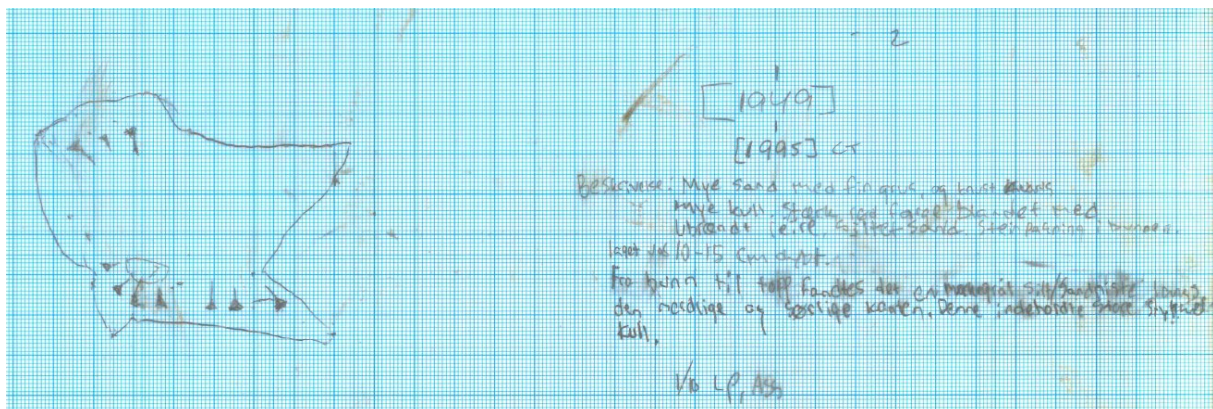 2
[1949]
[1995] CT
Beskrivelse: Mye sand med fin grus, og knust
Mye kull. Sterk rød farge blandet med
Ubrændt leire, Sand. Steinpakning i bunnen.
laget var 10-15 cm dypt.
Fra bunn til topp fandtes det en silt/Sandlinse langs
den nordlige og kanten. Denne indeholdte store stykker
kull.
1/10 LP,